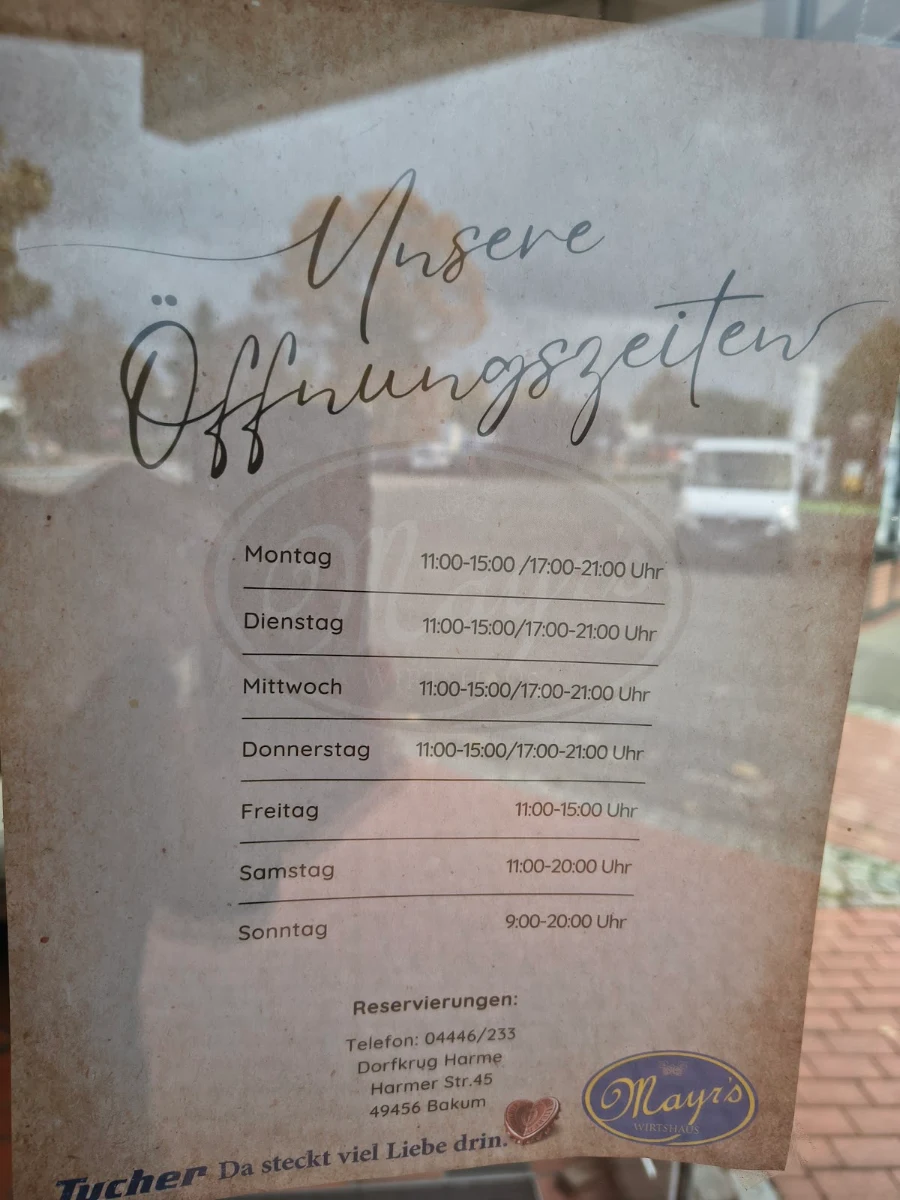 Unsere
Öffnungszeiten
Montag 11:00-15:00 /17:00-21:00 Uhr
Dienstag 11:00-15:00/17:00-21:00 Uhr
Mittwoch 11:00-15:00/17:00-21:00 Uhr
Donnerstag 11:00-15:00/17:00-21:00 Uhr
Freitag 11:00-15:00 Uhr
Samstag 11:00-20:00 Uhr
Sonntag 9:00-20:00 Uhr
Reservierungen:
Telefon: 04446/233
Dorfkrug Harme
Harmer Str.45
49456 Bakum
Mayr's
WIRTSHAUS
Tucher Da steckt viel Liebe drin.